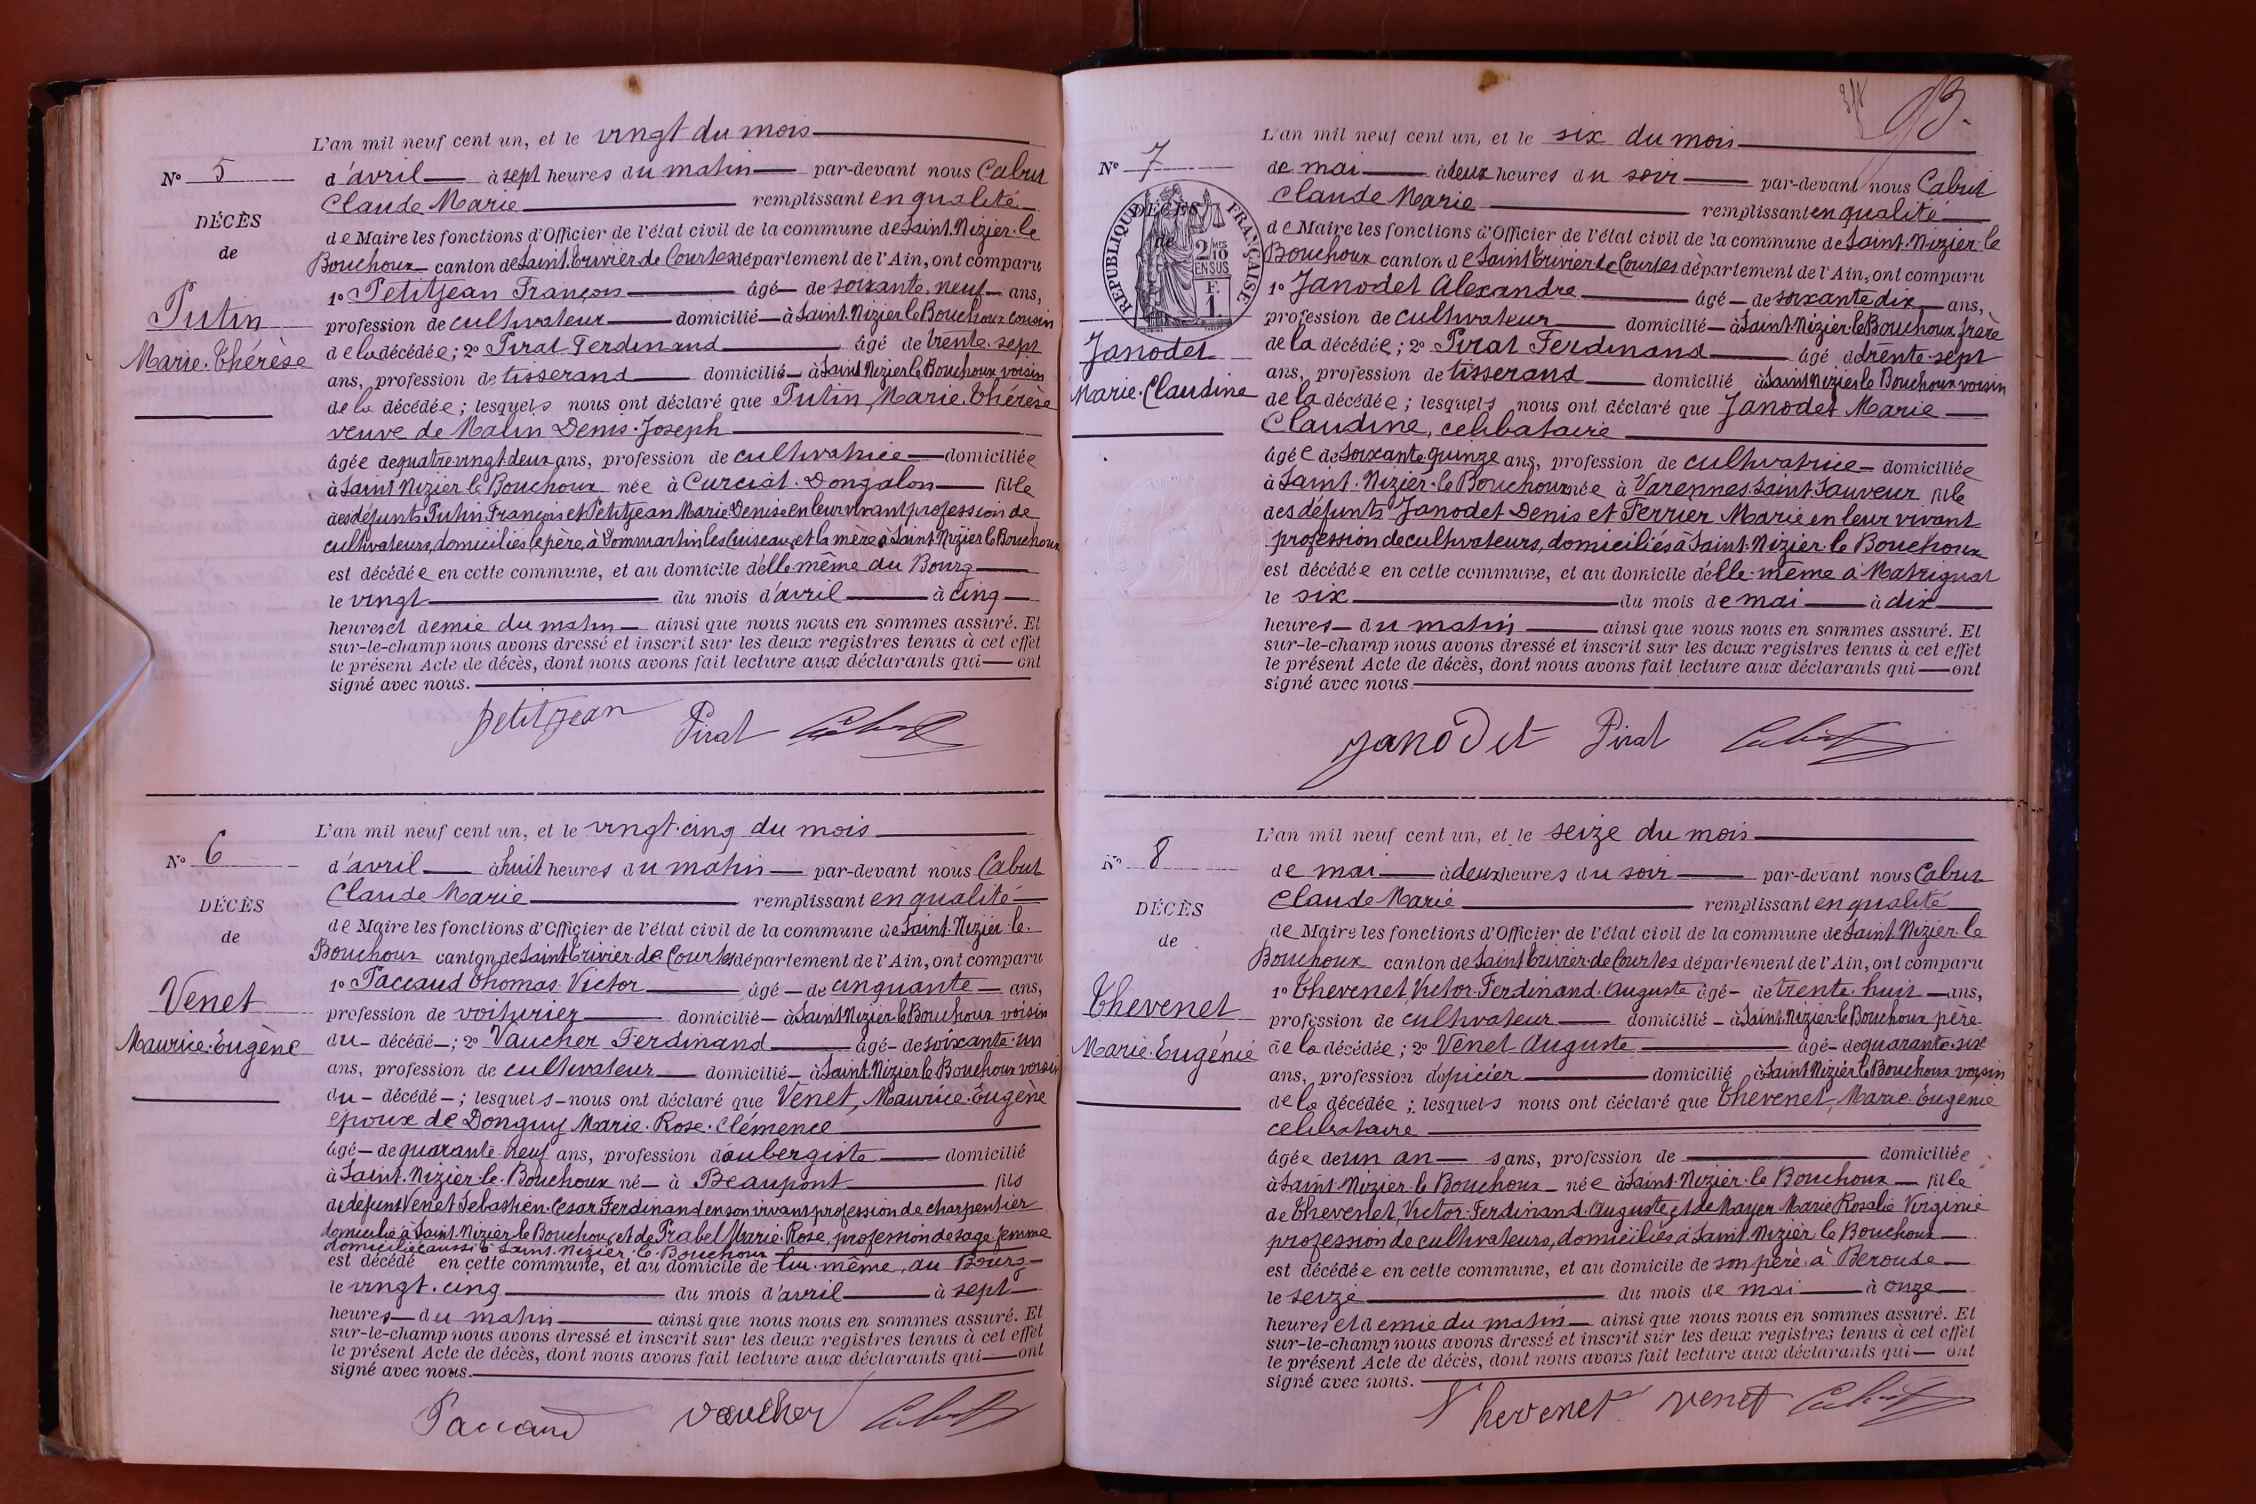 L'an mil neuf cent un, et le vingt du mois
Nº 5
d'avril à sept heures du matin par-devant nous Cabut
Claude Marie remplissant en qualité
DÉCÈS
de Maire les fonctions d'Officier de l'état civil de la commune de Saint-Nizier-le
de
Bouchoux canton de Saint Trivier de Courtes département de l'Ain, ont comparu
1º Petitjean François âgé de soixante-neuf ans,
Putin
profession de cultivateur domicilié à Saint Nizier le Bouchoux cousin
Marie-Thérèse
de la décédée; 2º Pirat Ferdinand âgé de trente-sept
ans, profession de tisserand domicilié à Saint Nizier le Bouchoux voisin
de la décédée; lesquels nous ont déclaré que Putin, Marie Thérèse
veuve de Malin Denis-Joseph
âgée de quatre vingt deux ans, profession de cultivatrice domiciliée
à Saint Nizier le Bouchoux née à Curciat-Dongalon fille
des défunts Putin François et Petitjean Marie Denise en leur vivant profession de
cultivateurs, domiciliés le père à Dommartin les Cuiseaux et la mère à Saint-Nizier le Bouchoux
est décédée en cette commune, et au domicile d'elle même au Bourg
le vingt du mois d'avril à cinq
heures et demie du matin ainsi que nous nous en sommes assuré. Et
sur-le-champ nous avons dressé et inscrit sur les deux registres tenus à cet effet
le présent Acte de décès, dont nous avons fait lecture aux déclarants qui ont
signé avec nous.
petitjean Pirat Cabut
L'an mil neuf cent un, et le vingt-cinq du mois
Nº 6
d'avril à huit heures du matin par-devant nous Cabut
Claude Marie remplissant en qualité
DÉCÈS
de Maire les fonctions d'Officier de l'état civil de la commune de Saint-Nizier-le-
de
Bouchoux canton de Saint Trivier-de Courtes département de l'Ain, ont comparu
1º Paccaud Thomas-Victor âgé de cinquante ans,
Venet
profession de voiturier domicilié à Saint Nizier le Bouchoux voisin
Maurice-Eugène
du décédé; 2º Vaucher Ferdinand âgé de soixante-un
ans, profession de cultivateur domicilié à Saint-Nizier le Bouchoux voisin
du décédé; lesquels nous ont déclaré que Venet, Maurice-Eugène
époux de Donguy Marie-Rose-Clémence
âgé de quarante-neuf ans, profession d'aubergiste domicilié
à Saint-Nizier-le-Bouchoux né à Beaupont fils
de défunt Venet Sébastien-César Ferdinand en son vivant profession de charpentier
domicilié à Saint-Nizier le Bouchoux, et de Prabel Marie-Rose, profession de sage femme
domiciliée aussi à Saint-Nizier-le-Bouchoux
est décédé en cette commune, et au domicile de lui-même, au Bourg
le vingt-cinq du mois d'avril à sept
heures du matin ainsi que nous nous en sommes assuré. Et
sur-le-champ nous avons dressé et inscrit sur les deux registres tenus à cet effet
le présent Acte de décès, dont nous avons fait lecture aux déclarants qui ont
signé avec nous.
Paccaud Vaucher Cabut
93.
L'an mil neuf cent un, et le six du mois
Nº 7
de mai à deux heures du soir par-devant nous Cabut
Claude Marie remplissant en qualité
DÉCÈS
de
RÉPUBLIQUE FRANÇAISE
2/10 EN SUS
F. 1
de Maire les fonctions d'Officier de l'état civil de la commune de Saint-Nizier-le
Bouchoux canton de Saint Trivier de Courtes département de l'Ain, ont comparu
1º Janodet Alexandre âgé de soixante dix ans,
profession de cultivateur domicilié à Saint-Nizier-le Bouchoux frère
Janodet
de la décédée; 2º Pirat Ferdinand âgé de trente-sept
Marie-Claudine
ans, profession de tisserand domicilié à Saint Nizier le Bouchoux voisin
de la décédée; lesquels nous ont déclaré que Janodet Marie
Claudine, célibataire
âgée de soixante quinze ans, profession de cultivatrice domiciliée
à Saint-Nizier-le Bouchoux née à Varennes Saint Sauveur fille
des défunts Janodet Denis et Perrier Marie en leur vivant
profession de cultivateurs, domiciliés à Saint-Nizier le Bouchoux
est décédée en cette commune, et au domicile d'elle-même à Matrignat
le six du mois de mai à dix
heures du matin ainsi que nous nous en sommes assuré. Et
sur-le-champ nous avons dressé et inscrit sur les deux registres tenus à cet effet
le présent Acte de décès, dont nous avons fait lecture aux déclarants qui ont
signé avec nous.
Janodet Pirat Cabut
L'an mil neuf cent un, et le seize du mois
Nº 8
de mai à deux heures du soir par-devant nous Cabut
Claude Marie remplissant en qualité
DÉCÈS
de Maire les fonctions d'Officier de l'état civil de la commune de Saint Nizier le
de
Bouchoux canton de Saint Trivier-de Courtes département de l'Ain, ont comparu
1º Thevenet, Victor-Ferdinand-Auguste âgé de trente-huit ans,
Thevenet
profession de cultivateur domicilié à Saint-Nizier-le Bouchoux père
Marie-Eugénie
de la décédée; 2º Venet Auguste âgé de quarante-six
ans, profession d'épicier domicilié à Saint Nizier le Bouchoux voisin
de la décédée; lesquels nous ont déclaré que Thevenet, Marie-Eugénie
célibataire
âgée de un an s ans, profession de domiciliée
à Saint-Nizier-le Bouchoux née à Saint-Nizier-le Bouchoux fille
de Thevenet, Victor-Ferdinand-Auguste, et de Mayer Marie Rosalie Virginie
profession de cultivateurs, domiciliés à Saint Nizier le Bouchoux
est décédée en cette commune, et au domicile de son père à Berouse
le seize du mois de mai à onze
heures et demie du matin ainsi que nous nous en sommes assuré. Et
sur-le-champ nous avons dressé et inscrit sur les deux registres tenus à cet effet
le présent Acte de décès, dont nous avons fait lecture aux déclarants qui ont
signé avec nous.
Thevenet Venet Cabut